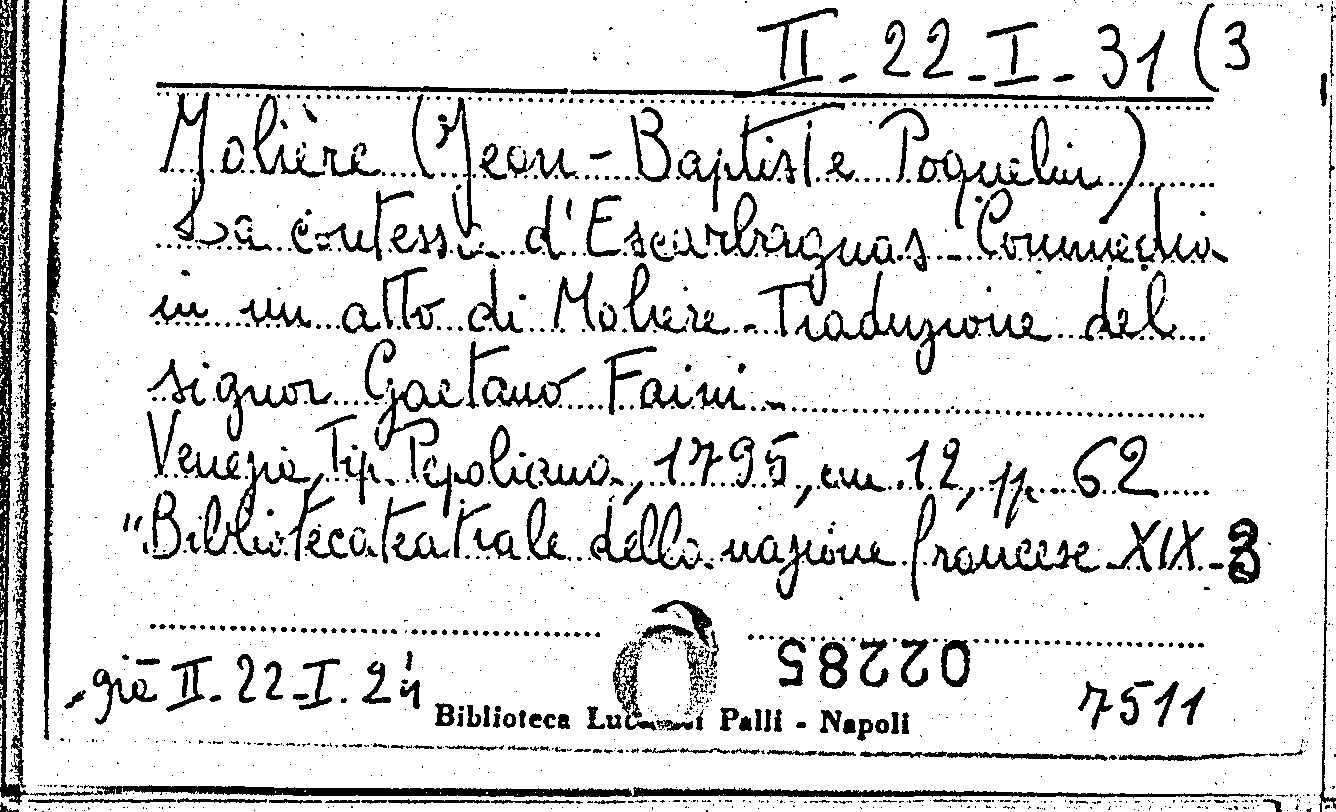 II - 22 - I - 31 (3
Molière (Jean-Baptiste Poquelin)
La contessa d'Escarbagnas - Commedia
in un atto di Moliere - Traduzione del
signor Gaetano Faini -
Venezia, Tip. Pepoliana, 1795, cm. 12, pp. 62
"Biblioteca teatrale della nazione francese XIX - 3
02285
già II - 22 - I. 24
7511
Biblioteca Palli - Napoli